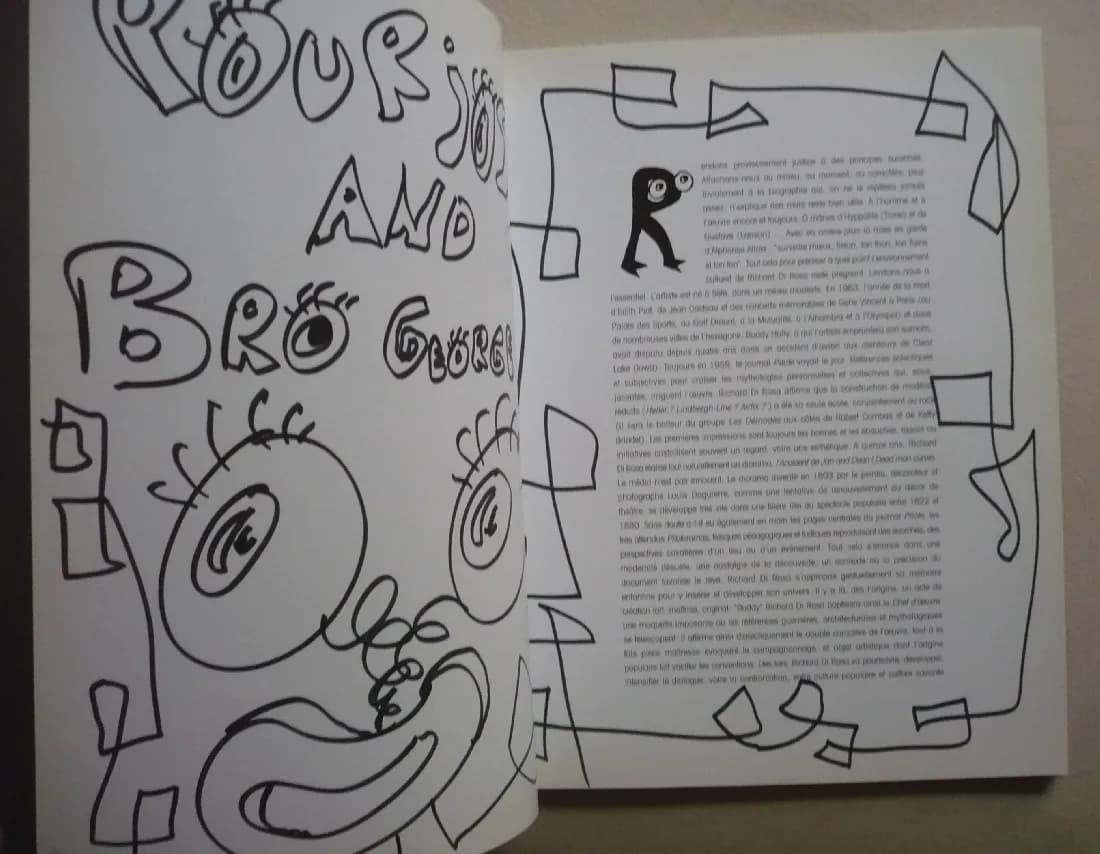 POUR JOS
AND
BRO GEORGE
R
endons provisoirement justice à des principes surannés.
Attachons nous au milieu, au moment, au caractère, plus
trivialement à la biographie qui, on ne le répétera jamais
assez, n'explique rien mais reste bien utile. A l'homme et à
l'œuvre encore et toujours. O mânes d'Hyppolite (Taine) et de
Gustave (Lanson)... Avec en arrière plan la mise en garde
d'Alphonse Allais "surveille mieux, Talon, ton thon, ton Taine
et ton ton". Tout cela pour préciser à quel point l'environnement
culturel de Richard Di Rosa reste prégnant. Limitons-nous à
l'essentiel. L'artiste est né à Sète, dans un milieu modeste. En 1963, l'année de la mort
d'Edith Piaf, de Jean Cocteau et des concerts mémorables de Gene Vincent à Paris (au
Palais des Sports, au Golf Drouot, à la Mutualité, à l'Alhambra et à l'Olympia) et dans
de nombreuses villes de l'hexagone. Buddy Holly, à qui l'artiste empruntera son surnom,
avait disparu depuis quatre ans dans un accident d'avion aux alentours de Clear
Lake (Iowa). Toujours en 1959, le journal Pilote voyait le jour. Références éclectiques
et subjectives pour croiser les mythologies personnelles et collectives qui, sous-
jacentes, irriguent l'œuvre. Richard Di Rosa affirme que la construction de modèles
réduits (Heller ? Lindbergh-Line ? Airfix ?) a été sa seule école, conjointement au rock
(il sera le batteur du groupe Les Démodés aux côtés de Robert Combas et de Ketty
Brindel). Les premières impressions sont toujours les bonnes et les ébauches, essais ou
initiatives cristallisent souvent un regard, voire une esthétique. A quinze ans, Richard
Di Rosa réalise tout naturellement un diorama, l'Accident de Jan and Dean (Dead man curve).
Le média n'est pas innocent. Le diorama inventé en 1822 par le peintre, décorateur et
photographe Louis Daguerre, comme une tentative de renouvellement du décor de
théâtre, se développe très vite dans une filière liée au spectacle populaire entre 1822 et
1880. Sans doute a-t-il eu également en main les pages centrales du journal Pilote, les
très attendus Pilotoramas, fresques pédagogiques et ludiques reproduisant des batailles, des
perspectives cavalières d'un lieu ou d'un événement. Tout cela s'énonce dans une
modernité désuète, une nostalgie de la découverte, un contexte où la précision du
document favorise le rêve. Richard Di Rosa s'approprie graduellement sa mémoire
enfantine pour y insérer et développer son univers. Il y a là, dès l'origine, un acte de
création fort, maîtrisé, original. "Buddy" Richard Di Rosa baptisera ainsi le Chef d'œuvre
une maquette imposante où les références guerrières, architecturales et mythologiques
se télescopent. Il affirme ainsi didactiquement le double caractère de l'œuvre, tout à la
fois pièce maîtresse évoquant le compagnonnage, et objet artistique dont l'origine
populaire fait vaciller les conventions. Dès lors, Richard Di Rosa va poursuivre, développer,
intensifier le dialogue, voire la confrontation, entre culture populaire et culture savante